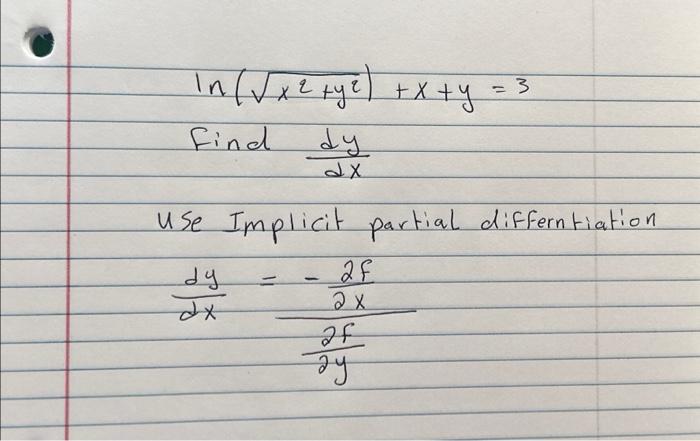 ln(√x²+y²) +x+y = 3
Find dy/dx
use Implicit partial differntiation
dy/dx = - ∂f/∂x / ∂f/∂y